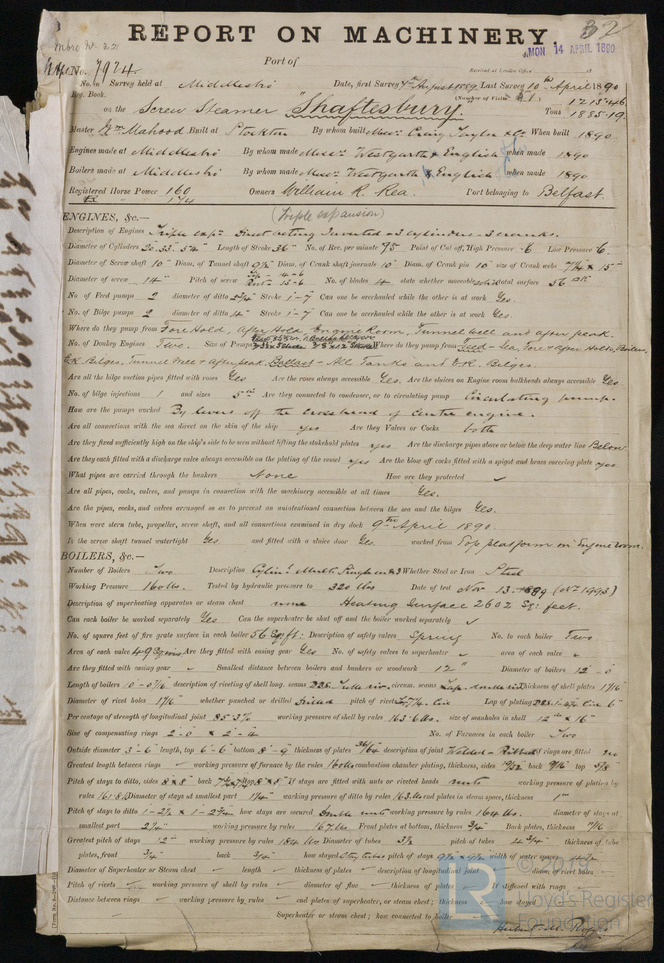 32
REPORT ON MACHINERY.
No. 7974
Port of
Received at London Office MON 14 APRIL 1890 18
No. in Survey held at Middlesbro Date, first Survey 7th August 1889 Last Survey 10th April 1890
Reg. Book. (Number of Visits
on the Screw Steamer "Shaftesbury" Tons 1213.46 1885.19
Master Wm Mahood Built at Stockton By whom built Messrs Craig Taylor & Co. When built 1890
Engines made at Middlesbro By whom made Messrs Westgarth & English when made 1890
Boilers made at Middlesbro By whom made Messrs Westgarth & English when made 1890
Registered Horse Power 160 Owners William R. Rea. Port belonging to Belfast.
174
ENGINES, &c.— (Triple expansion)
Description of Engines Triple expn Direct acting Inverted 3 Cylinders 3 cranks.
Diameter of Cylinders 20.33.54" Length of Stroke 36" No. of Rev. per minute 95 Point of Cut off, High Pressure .6 Low Pressure .6.
Diameter of Screw shaft 10" Diam. of Tunnel shaft 9½ Diam. of Crank shaft journals 10" Diam. of Crank pin 10" size of Crank webs 7¼ x 15"
Diameter of screw 14" Pitch of screw No. of blades 4 state whether moveable solid total surface 56
No. of Feed pumps 2 diameter of ditto Stroke 1-7" Can one be overhauled while the other is at work Yes.
No. of Bilge pumps 2 diameter of ditto 4" Stroke 1-7" Can one be overhauled while the other is at work Yes.
Where do they pump from Fore Hold, After Hold, Engine Room, Tunnel well and after peak.
No. of Donkey Engines Two. Size of Pumps Where do they pump from Feed - Sea, Fore & After Holds, Boilers,
E.R. Bilges, Tunnel Well & after peak. Ballast - All Tanks and E.R. Bilges.
Are all the bilge suction pipes fitted with roses Yes Are the roses always accessible Yes. Are the sluices on Engine room bulkheads always accessible Yes
No. of bilge injections 1 and sizes 5" Are they connected to condenser, or to circulating pump Circulating pump.
How are the pumps worked By levers off the crosshead of centre engine.
Are all connections with the sea direct on the skin of the ship yes Are they Valves or Cocks both
Are they fixed sufficiently high on the ship's side to be seen without lifting the stokehold plates yes Are the discharge pipes above or below the deep water line Below
Are they each fitted with a discharge valve always accessible on the plating of the vessel yes Are the blow off cocks fitted with a spigot and brass covering plate yes
What pipes are carried through the bunkers None How are they protected ✓
Are all pipes, cocks, valves, and pumps in connection with the machinery accessible at all times Yes.
Are the pipes, cocks, and valves arranged so as to prevent an unintentional connection between the sea and the bilges Yes.
When were stern tube, propeller, screw shaft, and all connections examined in dry dock 9th April 1890.
Is the screw shaft tunnel watertight Yes and fitted with a sluice door Yes. worked from Top platform in Engine room.
BOILERS, &c.—
Number of Boilers Two Description Cylinl Multr Whether Steel or Iron Steel
Working Pressure 160 lbs. Tested by hydraulic pressure to 320 lbs Date of test Nov 13. 1889 (No. 1995)
Description of superheating apparatus or steam chest none Heating Surface 2602 Sq: feet.
Can each boiler be worked separately Yes Can the superheater be shut off and the boiler worked separately ✓
No. of square feet of fire grate surface in each boiler 56 Sq ft: Description of safety valves Spring No. to each boiler Two
Area of each valve 4.9 Sq ins Are they fitted with easing gear Yes No. of safety valves to superheater ✓ area of each valve ✓
Are they fitted with easing gear ✓ Smallest distance between boilers and bunkers or woodwork 12" Diameter of boilers 12'-0
Length of boilers description of riveting of shell long. seams circum. seams Lap thickness of shell plates 1 1/16
Diameter of rivet holes 1 1/16 whether punched or drilled Drilled pitch of rivets Lap of plating
Per centage of strength of longitudinal joint 85.3% working pressure of shell by rules 163.6 lbs. size of manholes in shell 12" x 16"
Size of compensating rings 2'-0 x 2'-4 No. of Furnaces in each boiler Two
Outside diameter 3'-6" length, top 6'-6" bottom 8'-9" thickness of plates description of joint Welded - Ribbed if rings are fitted no
Greatest length between rings ✓ working pressure of furnace by the rules 160 lbs combustion chamber plating, thickness, sides back 9/16 top 5/8
Pitch of stays to ditto, sides 8 x 8 back top If stays are fitted with nuts or riveted heads nuts working pressure of plating by
rules Diameter of stays at smallest part 1¼" working pressure of ditto by rules 163 lbs end plates in steam space, thickness 1"
Pitch of stays to ditto how stays are secured Double nuts working pressure by rules 164 lbs. diameter of stays at
smallest part 2¼" working pressure by rules 167 lbs. Front plates at bottom, thickness ¾" Back plates, thickness 7/16
Greatest pitch of stays 12" working pressure by rules 184 lbs Diameter of tubes 3½ pitch of tubes 4¾ thickness of tube
plates, front ¾" back ¾" how stayed Stay tubes pitch of stays width of water spaces
Diameter of Superheater or Steam chest ✓ length ✓ thickness of plates ✓ description of longitudinal joint diam. of rivet holes
Pitch of rivets ✓ working pressure of shell by rules ✓ diameter of flue ✓ thickness of plates If stiffened with rings
Distance between rings ✓ working pressure by rules ✓ end plates of superheater, or steam chest; thickness how stayed
Superheater or steam chest; how connected to boiler
LR
© 201
Lloyd's Register
Foundation